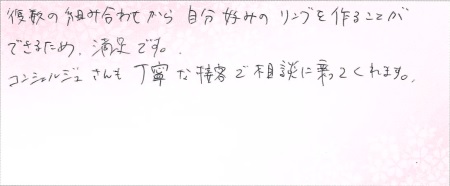 複数の組み合わせから自分好みのリングを作ることが
できるため、満足です。
コンシェルジュさんも丁寧な接客で相談に乗ってくれます。